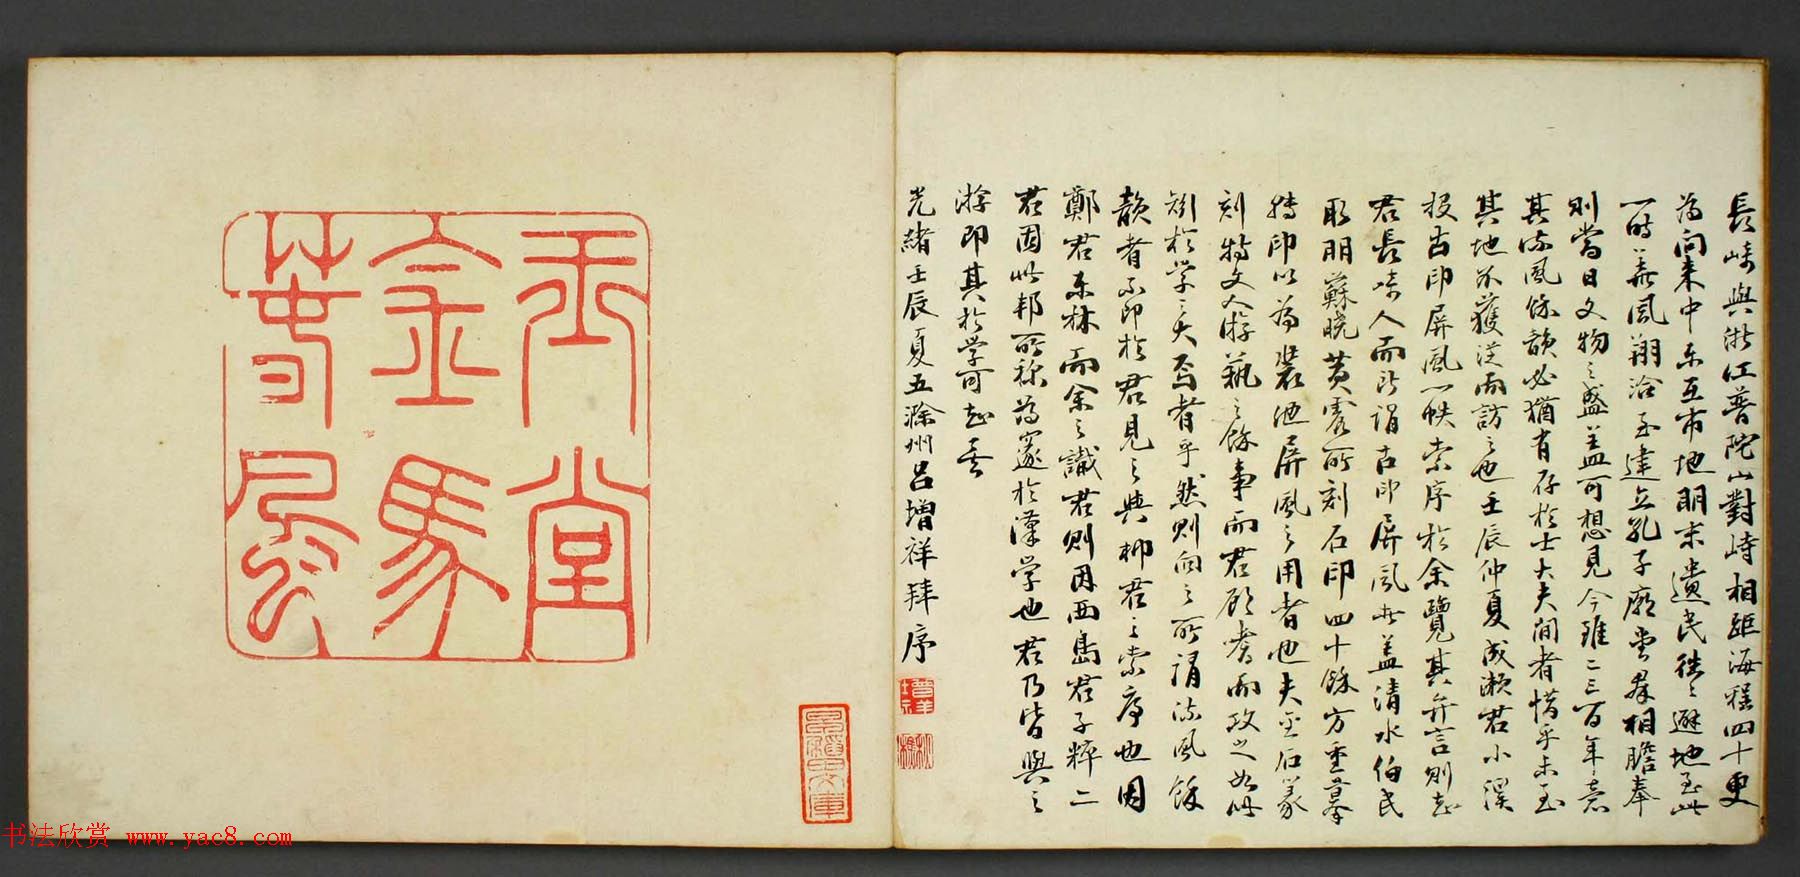 長崎與浙江普陀山對峙相距海程四十更
為向来中東互市地明末遺民往々避地至此
一時華風翔洽至建立孔子廟堂群相瞻奉
則當日文物之盛蓋可想見今雖二三百年意
其流風餘韻必猶有存於士大夫間者惜乎未至
其地不獲從而訪之也壬辰仲夏成瀨君小溪
投古印屏風一帙索序於余覽其弁言則知
君長崎人而所謂古印屏風者蓋清水伯民
取明蘇曉黃霞所刻石印四十餘方重摹
印以為裝池屏風之用者也夫金石篆
刻特文人游藝之餘事而君顧耆而攻之如此
矧於學之大焉者乎然則向之所謂流風餘
韻者不即於君見之與抑君之索序也因
鄭君東林而余之識君則因西島君子粹二
君固此邦所称為邃於漢学也君乃皆與之
游即其於学可知矣
光緒壬辰夏五滁州呂增祥拜序
玉堂
金馬
文庫
书法欣赏 www.yac8.com